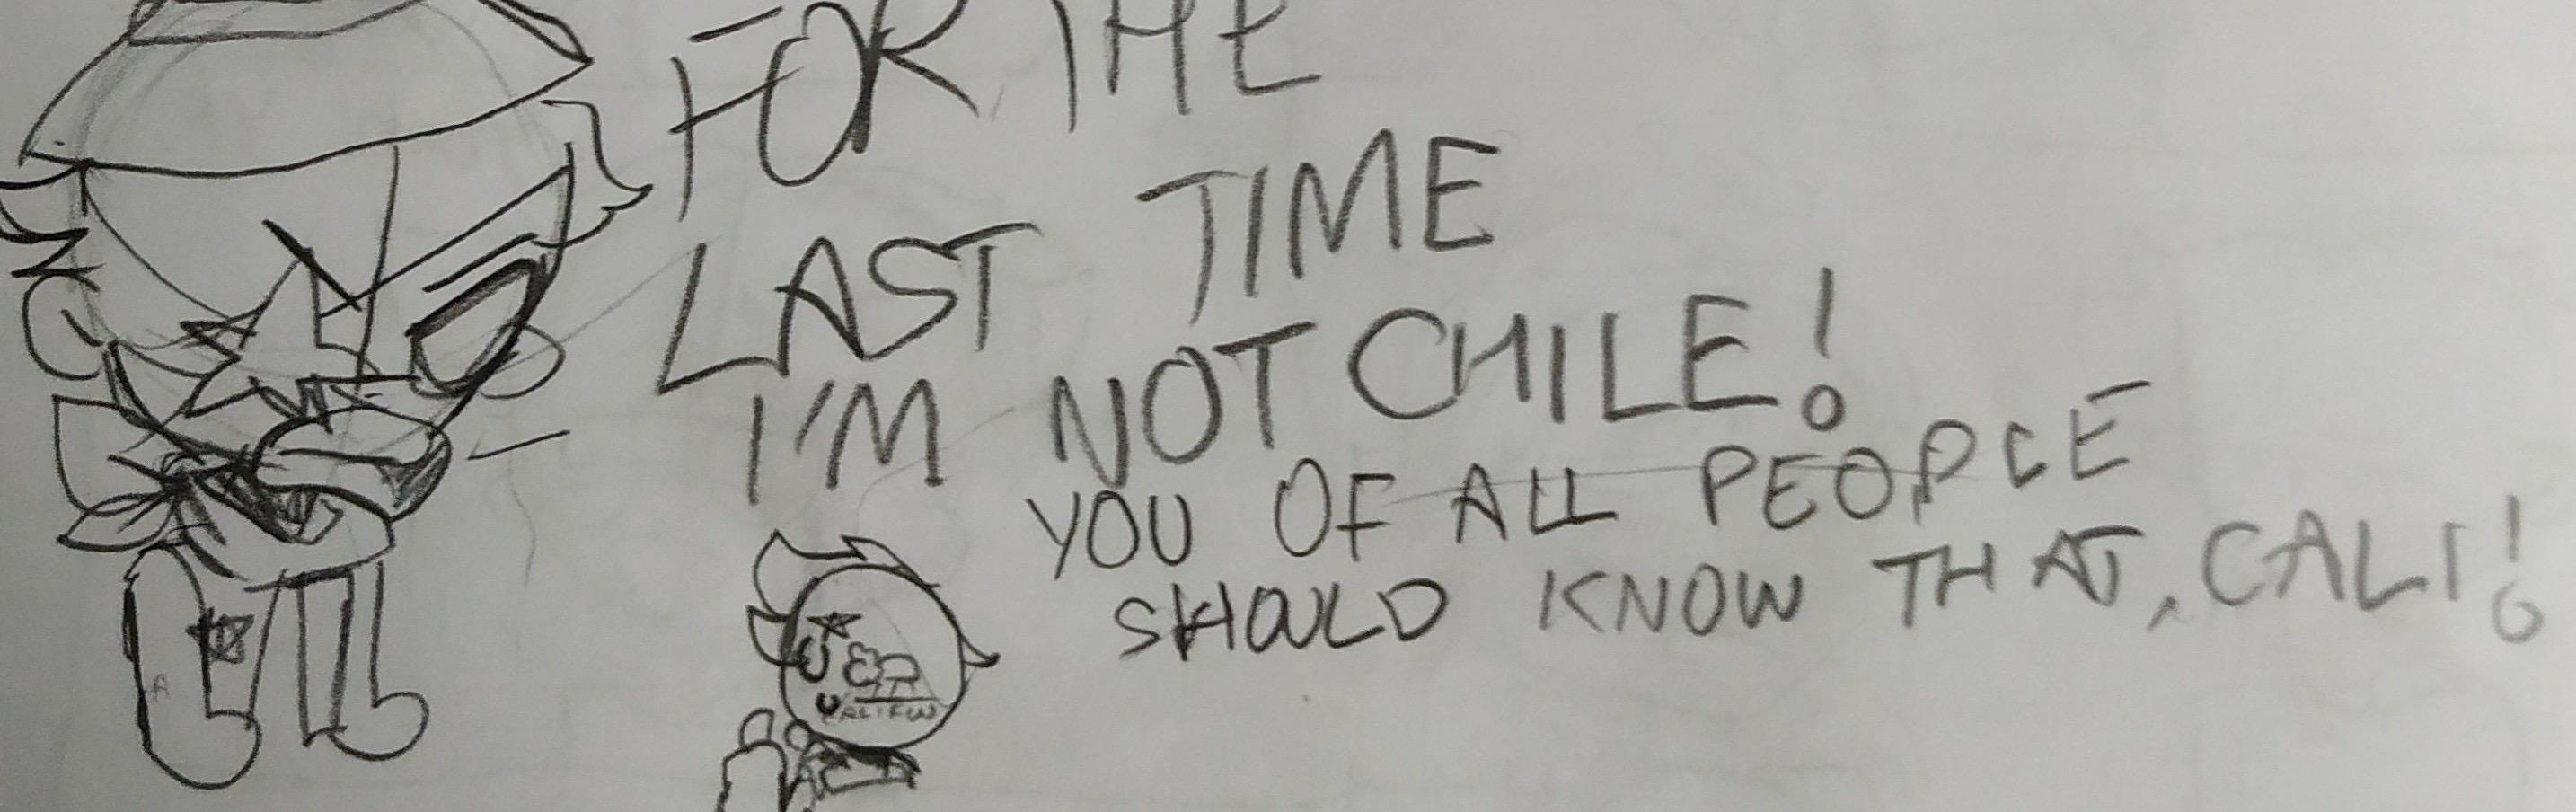 FOR THE
LAST TIME
I'M NOT CHILE!
YOU OF ALL PEOPLE
SHOULD KNOW THAT, CALI!